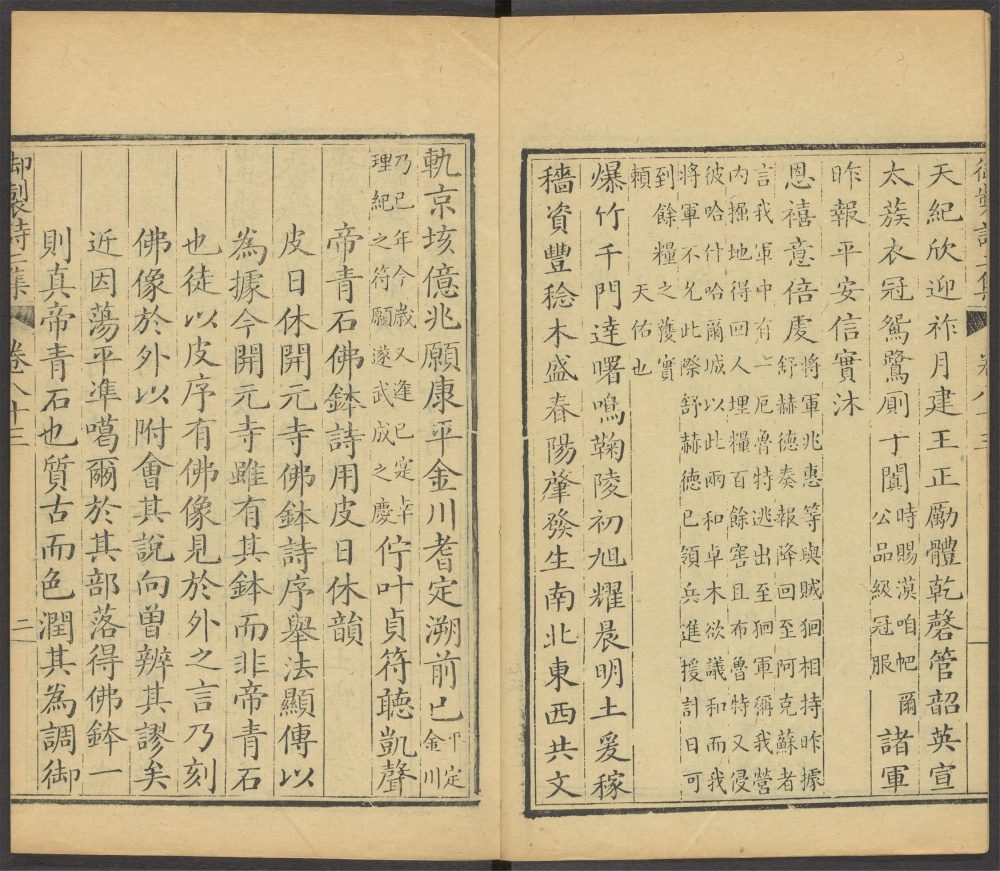 御製詩二集 卷八十三
天紀欣迎祚月建王正勵體乾磬管韶英宣
太蔟衣冠鴛鷺廁于闐時賜漠咱帊爾公品級冠服諸軍
昨報平安信實沐
恩禧意倍虔將軍兆惠等與賊狪相持昨據舒赫德奏報降回至阿克蘇者
言我軍中有二厄魯特逃出至狪軍謂我營
內掘地得回人埋糧百餘窖且布魯特又侵
彼哈什哈爾城以此兩和卓木欲議和而我
將軍不允此際舒赫德已領兵進援計日可
到餘糧之獲實
賴天佑也
爆竹千門達曙鳴鞠陵初旭耀晨明土爰稼
穡資豐稔木盛春陽肇發生南北東西共文
軌京垓億兆願康平金川耆定溯前已平定金川
乃已年今歲又逢已寔卒理紀之符願遂武成之慶佇叶貞符聽凱聲
帝青石佛鉢詩用皮日休韻
皮日休開元寺佛鉢詩序舉法顯傳以
為據今開元寺雖有其鉢而非帝青石
也徒以皮序有佛像見於外之言乃刻
佛像於外以附會其說向曾辨其謬矣
近因蕩平準噶爾於其部落得佛鉢一
則真帝青石也質古而色潤其為調御
御製詩二集 卷八十三 二